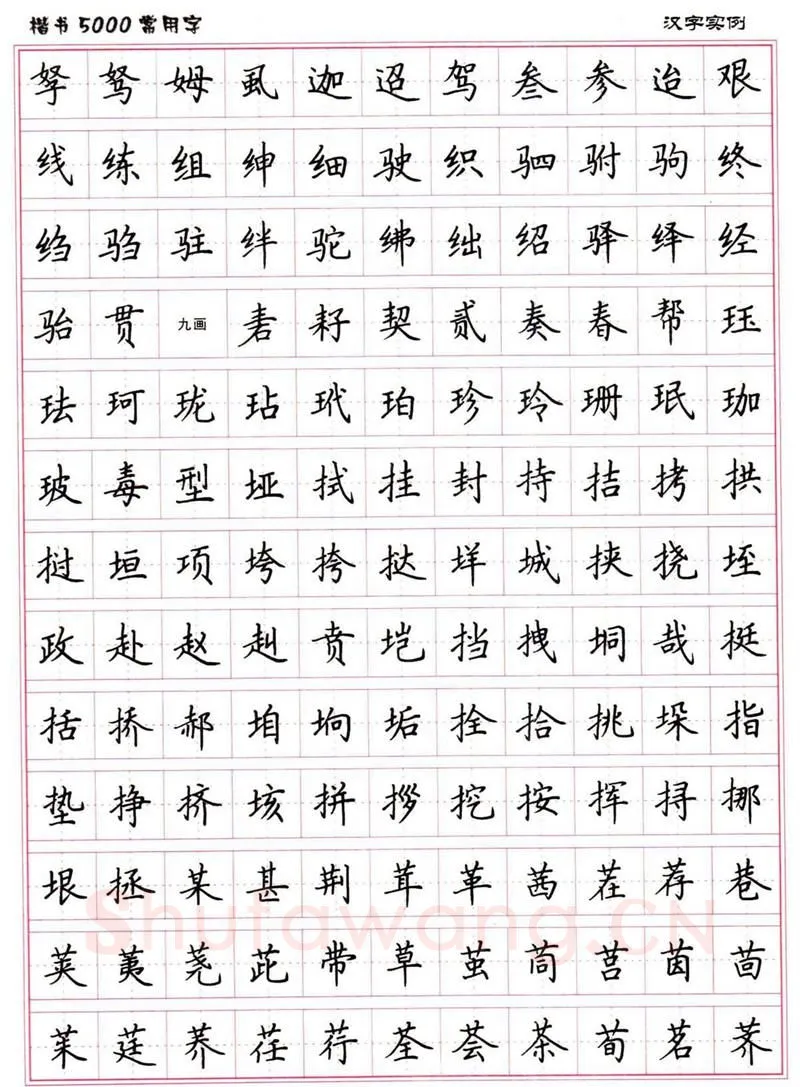 楷书5000常用字 汉字实例
孥 驽 姆 虱 迦 迢 驾 叁 参 迨 艰
线 练 组 绅 细 驶 织 驷 驸 驹 终
绉 驺 驻 绊 驼 绋 绌 绍 驿 绎 经
骀 贯 九画 砉 耔 契 贰 奏 春 帮 珏
珐 珂 珑 玷 玳 珀 珍 玲 珊 珉 珈
玻 毒 型 垭 拭 挂 封 持 拮 拷 拱
挝 垣 项 垮 挎 挞 垟 城 挟 挠 垤
政 赴 赵 赳 贲 垲 挡 拽 垌 哉 挺
括 挢 郝 垍 垧 垢 拴 拾 挑 垛 指
垫 挣 挤 垓 拼 拶 挖 按 挥 挦 挪
垠 拯 某 甚 荆 茸 革 茜 茬 荐 巷
荚 荑 荛 茈 带 草 茧 茼 莒 茵 茴
茱 莛 荞 荏 荇 荃 荟 茶 荀 茗 荠
Shufawang.CN